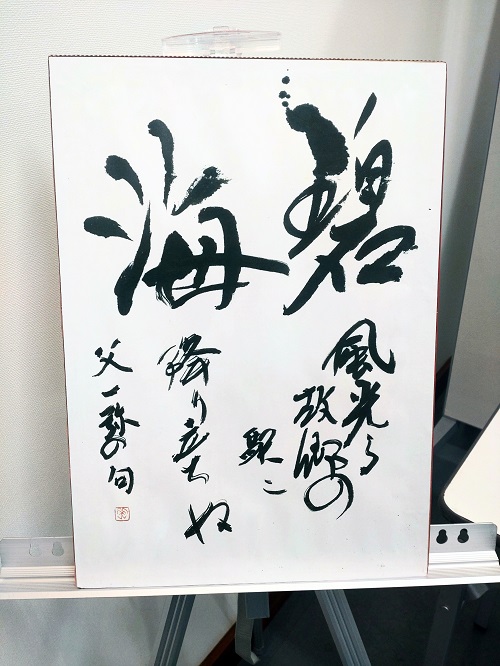 碧海
風光る
故郷の
駅に
降り立ちぬ
父一の句